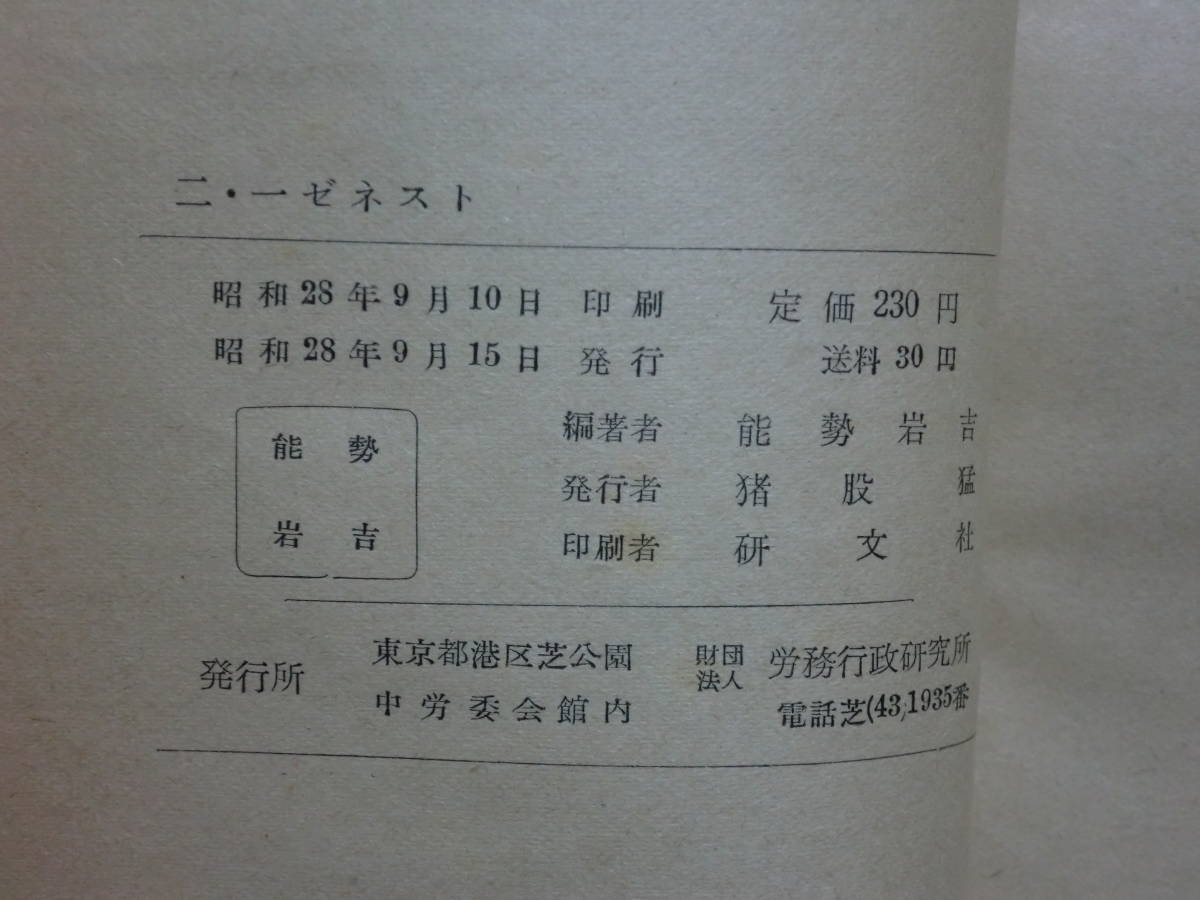 二・一ゼネスト
昭和28年9月10日 印刷 定価230円
昭和28年9月15日 発行 送料30円
能勢
岩吉
編著者 能勢岩吉
発行者 猪股猛
印刷者 研文社
発行所
東京都港区芝公園
中労委会館内
財団
法人
労務行政研究所
電話芝(43)1935番